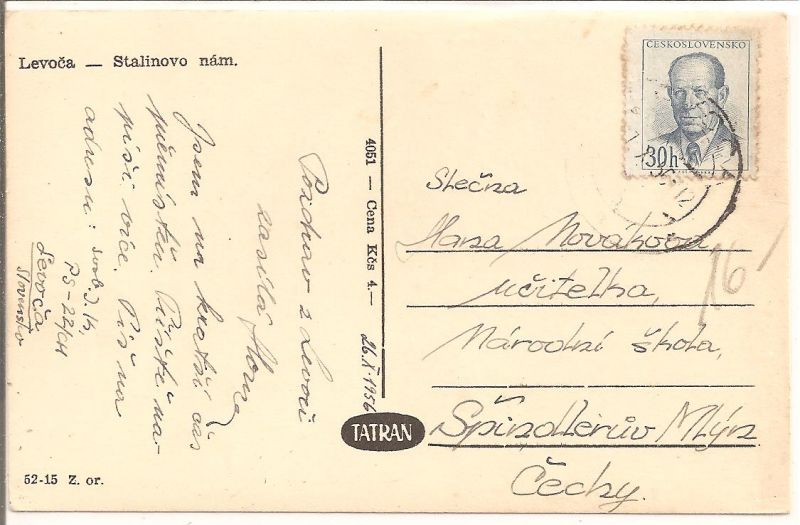 Levoča — Stalinovo nám.
ČESKOSLOVENSKO
30h
Pozdrav z Levoči
zasílá
Jsem na kratší čas
přemístěn. Příště na-
píši více. Piš na
adresu: svob. J. H,
PS-22/CH
Levoča
Slovensko
4051 — Cena Kčs 4.—
26.X 1956
TATRAN
Slečna
Hana Novákova
učitelka,
Národní škola,
Špindlerův Mlýn
Čechy.
16
52-15 Z. or.